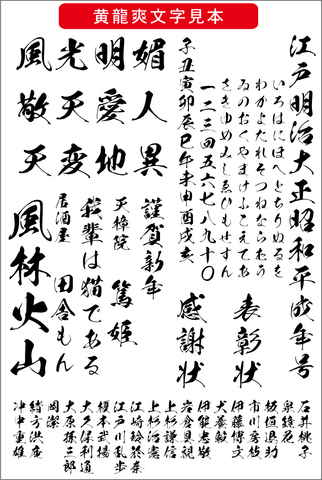 黄龍爽文字見本
江戸明治大正昭和平成年号
いろはにほへとちりぬるを
わかよたれそつねならむう
ゐのおくやまけふこえてあ
さきゆめみしゑひもせすん
一二三四五六七八九十〇
子丑寅卯辰巳午未申酉戌亥
表彰状
感謝状
媚人異
明愛地
光天変
風敬天
謹賀新年
篤姫
天樟院
我輩は猫である
田舎もん
居酒屋
風林火山
石井桃子
泉鏡花
板垣退助
市川房枝
伊藤博文
犬養毅
伊能忠敬
岩倉具視
上杉謙信
上杉治憲
江崎玲於奈
江戸川乱歩
榎本武揚
大久保利通
大原孫三郎
岡潔
緒方洪庵
沖中重雄